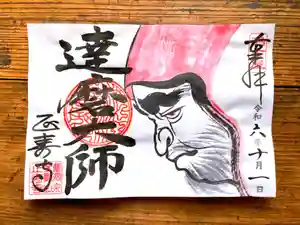 奉拝
令和六年十月一日
達磨大師
正寿寺